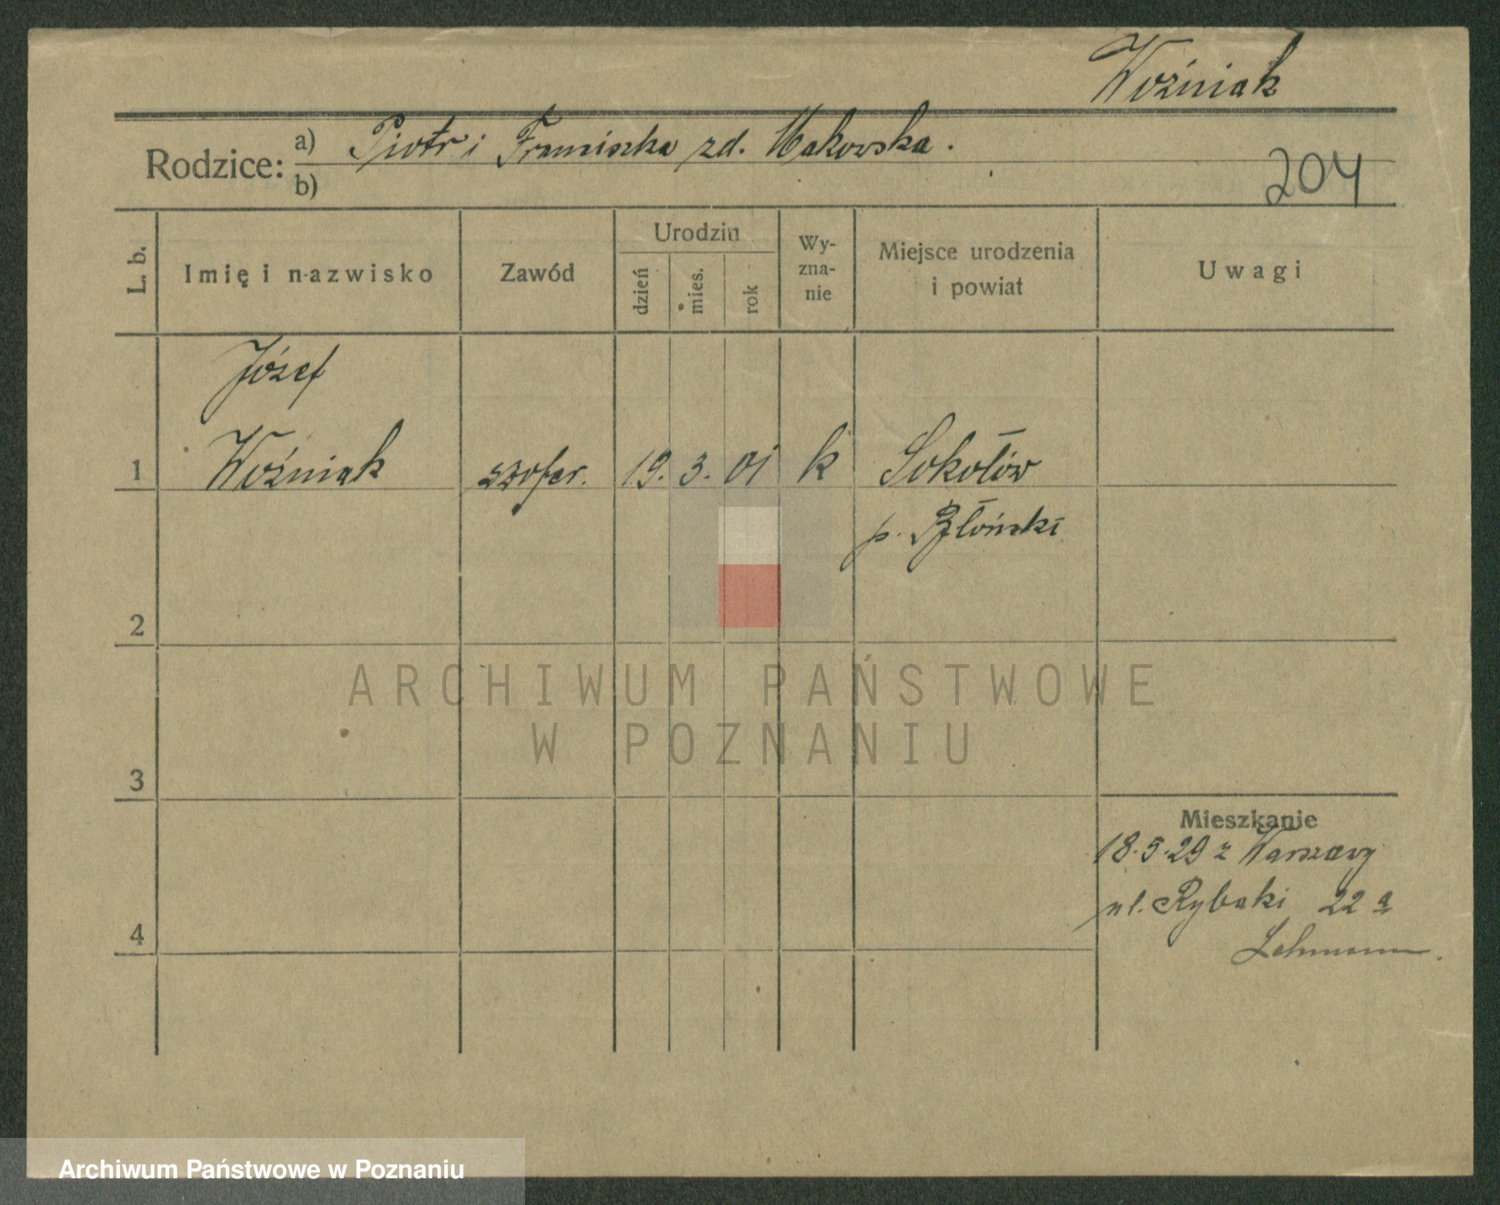 Woźniak
Rodzice: a) Piotr i Franciszka zd. Makowska.
b)
204
L. b.
Imię i nazwisko
Zawód
Urodzin
dzień
mies.
rok
Wy-
zna-
nie
Miejsce urodzenia
i powiat
Uwagi
Józef
1 Woźniak szofer. 19. 3. 01 k Sokołów
p. Błoński
2
3
4
Mieszkanie
18.5.29 z Warszawy
ul. Rybaki 22 a
Lehmann.
ARCHIWUM PAŃSTWOWE
W POZNANIU
Archiwum Państwowe w Poznaniu